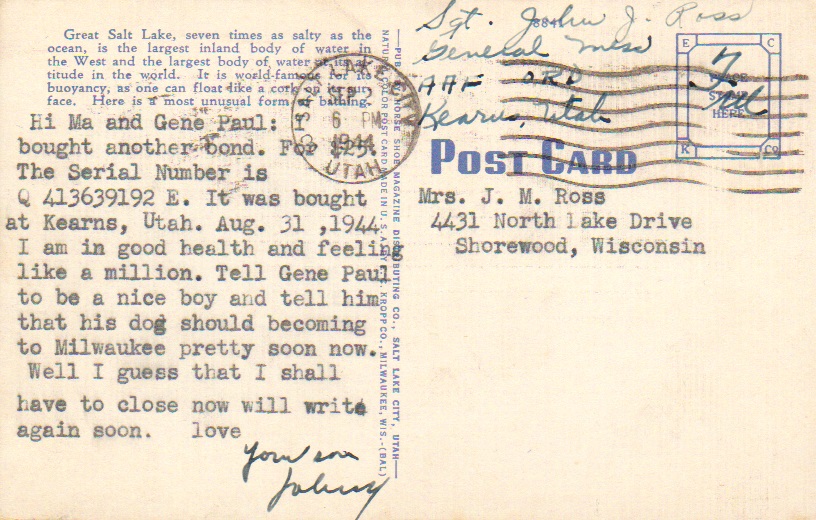 Great Salt Lake, seven times as salty as the
ocean, is the largest inland body of water in
the West and the largest body of water at its al-
titude in the world. It is world-famous for its
buoyancy, as one can float like a cork on its sur-
face. Here is a most unusual form of bathing.
Hi Ma and Gene Paul: I
bought another bond. For $25.
The Serial Number is
Q 413639192 E. It was bought
at Kearns, Utah. Aug. 31 ,1944
I am in good health and feeling
like a million. Tell Gene Paul
to be a nice boy and tell him
that his dog should becoming
to Milwaukee pretty soon now.
Well I guess that I shall
have to close now will write
again soon. love
Your son
Johny
PUB. BY HORSE SHOE MAGAZINE DISTRIBUTING CO., SALT LAKE CITY, UTAH
NATURAL COLOR POST CARD MADE IN U. S. A. BY E. C. KROPP CO., MILWAUKEE, WIS.-(BAL)
SALT LAKE CITY
SEP 2
6 PM
1944
UTAH
Sgt. John J. Ross
General Mess
AAF ORD
Kearns, Utah
E C
PLACE
STAMP
HERE
K Co
Free
POST CARD
Mrs. J. M. Ross
4431 North Lake Drive
Shorewood, Wisconsin